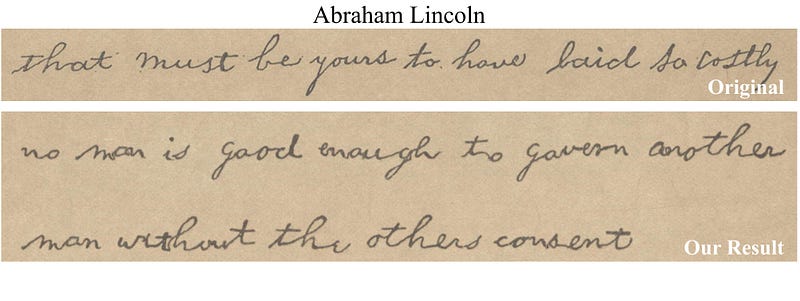 Abraham Lincoln
that must be yours to have laid so costly
Original
no man is good enough to govern another
man without the others consent
Our Result